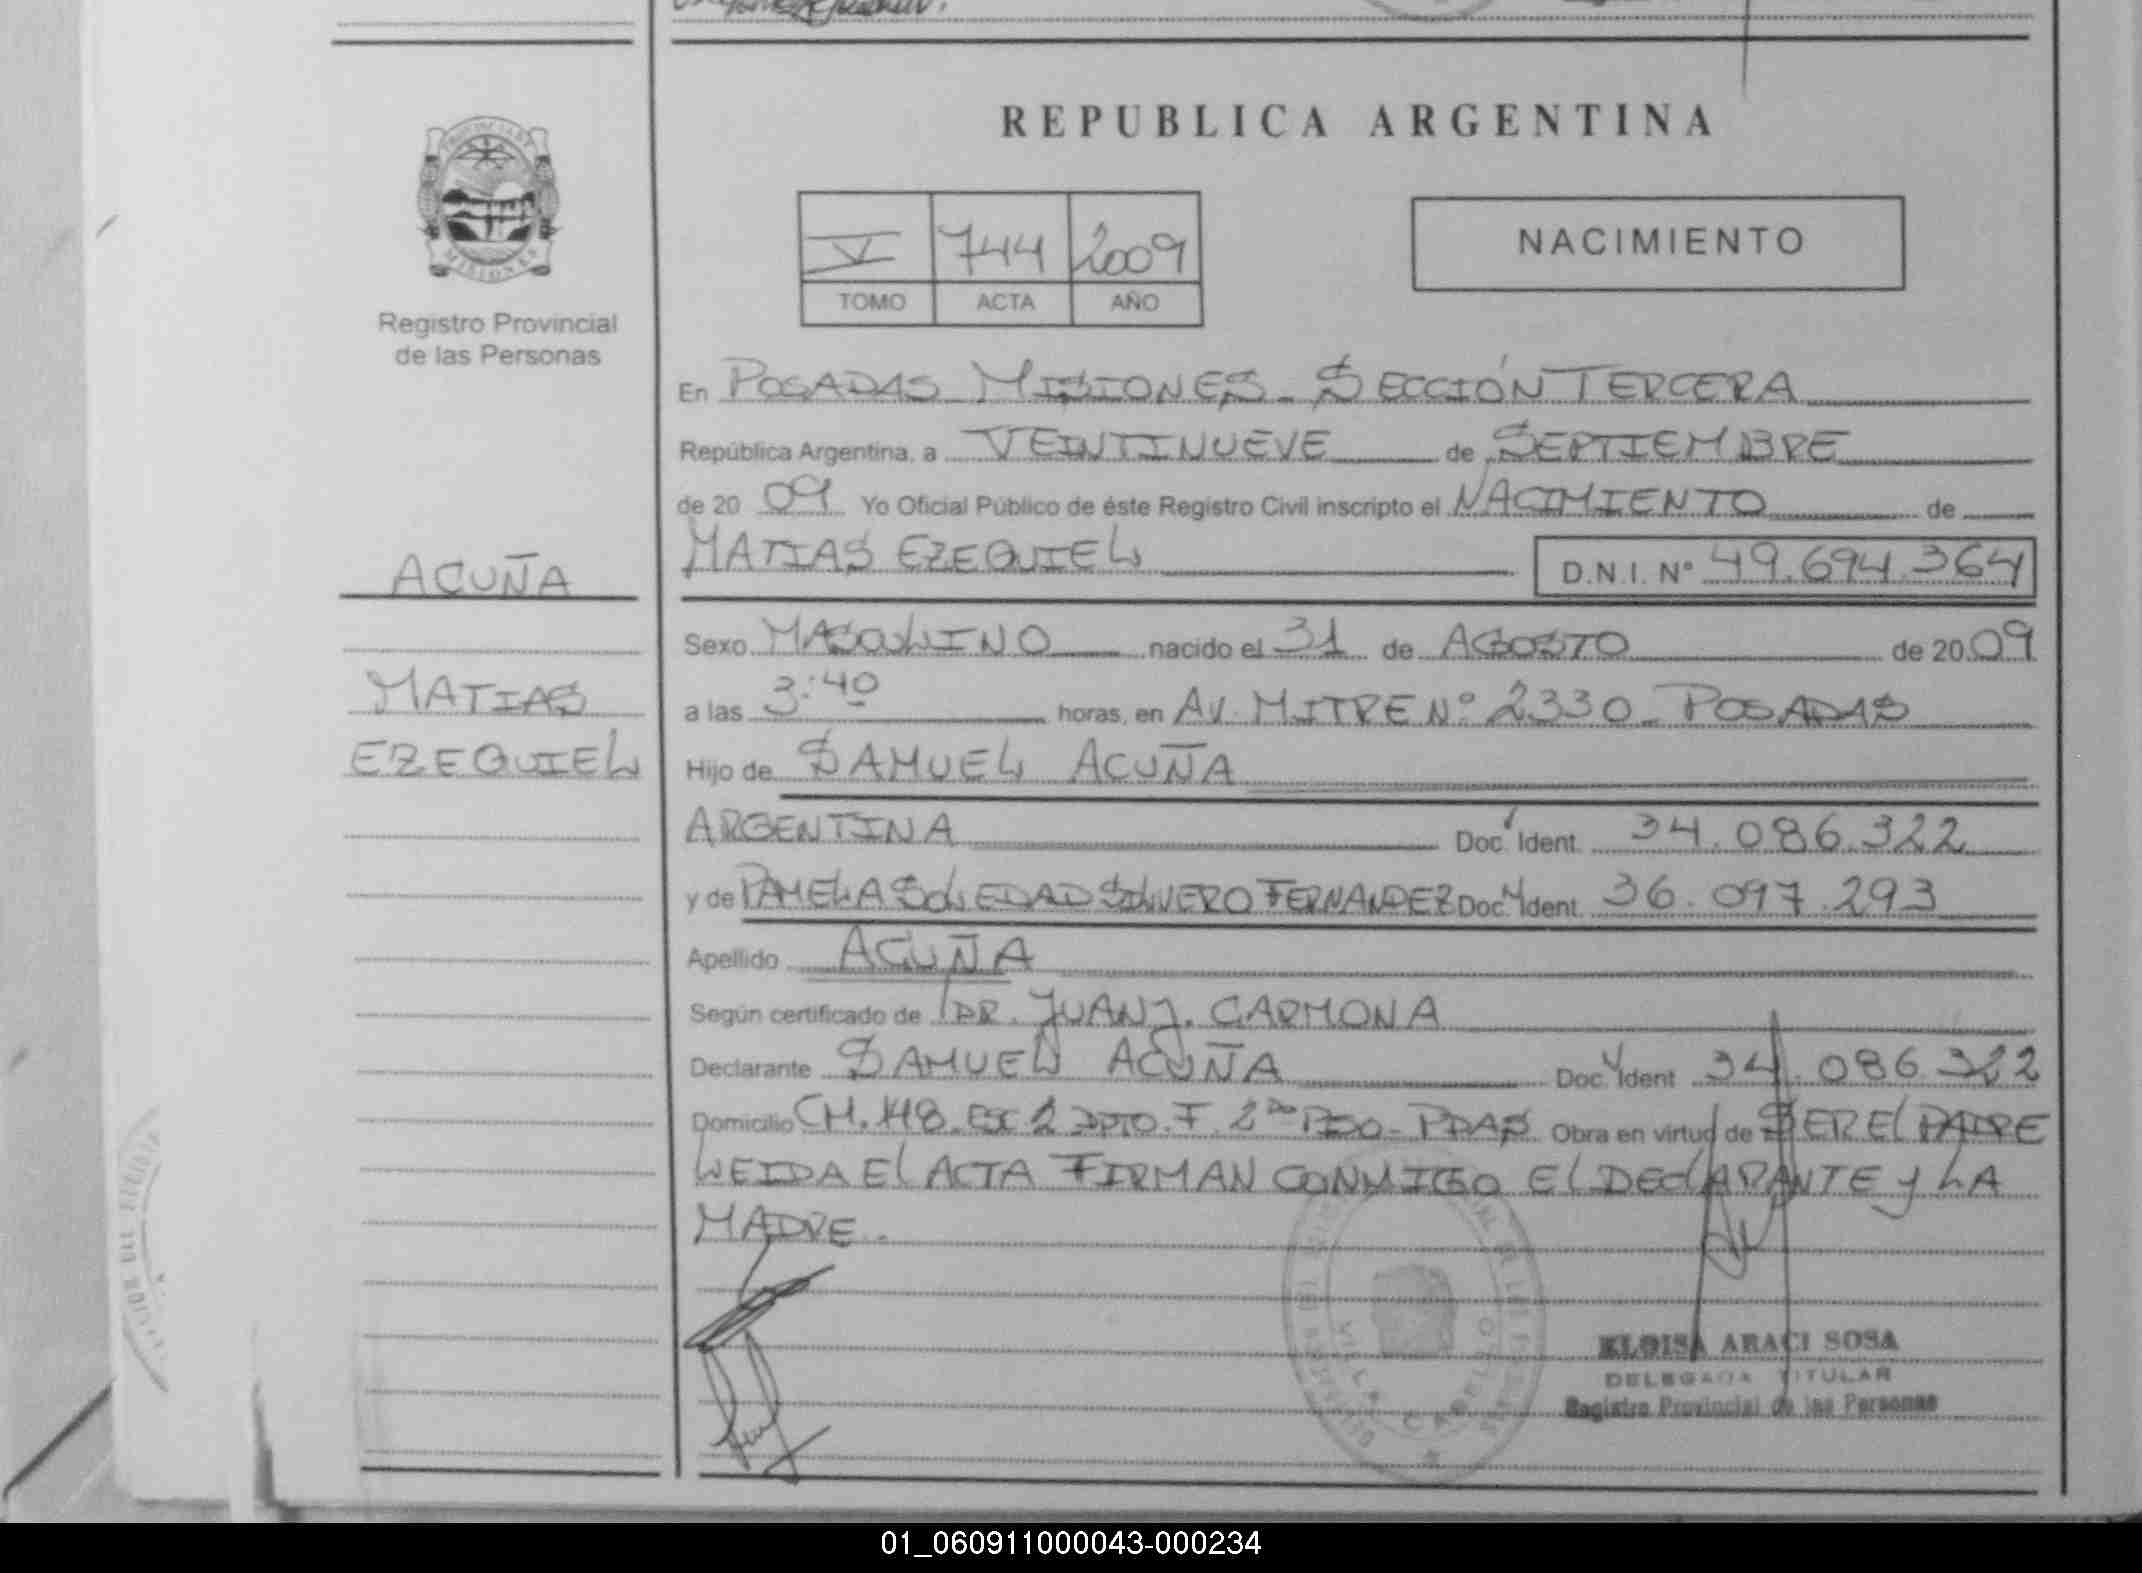 REPUBLICA ARGENTINA
PROVINCIA DE
MISIONES
Registro Provincial
de las Personas
V 744 2009
TOMO ACTA AÑO
NACIMIENTO
En POSADAS MISIONES - SECCIÓN TERCERA
República Argentina, a VEINTINUEVE de SEPTIEMBRE
de 20 09 Yo Oficial Público de éste Registro Civil inscripto el NACIMIENTO de
MATIAS EZEQUIEL D.N.I. Nº 49.694.364
ACUÑA
MATIAS
EZEQUIEL
Sexo MASCULINO nacido el 31 de AGOSTO de 20 09
a las 3:40 horas, en AV. MITRE Nº 2330 - POSADAS
Hijo de SAMUEL ACUÑA
ARGENTINA Doc. Ident. 34.086.322
y de PAMELA SOLEDAD SILVERO FERNANDEZ Doc. Ident. 36.097.293
Apellido ACUÑA
Según certificado de DR. JUAN J. CARMONA
Declarante SAMUEL ACUÑA Doc. Ident. 34.086.322
Domicilio CH. 148. ESC 2 DPTO. F. 2do PISO - PDAS Obra en virtud de SER EL PADRE
LEIDA EL ACTA FIRMAN CONMIGO EL DECLARANTE y LA
MADRE.
VILLA CABELLO
ELOISA ARACI SOSA
DELEGADA TITULAR
Registro Provincial de las Personas
01_060911000043-000234